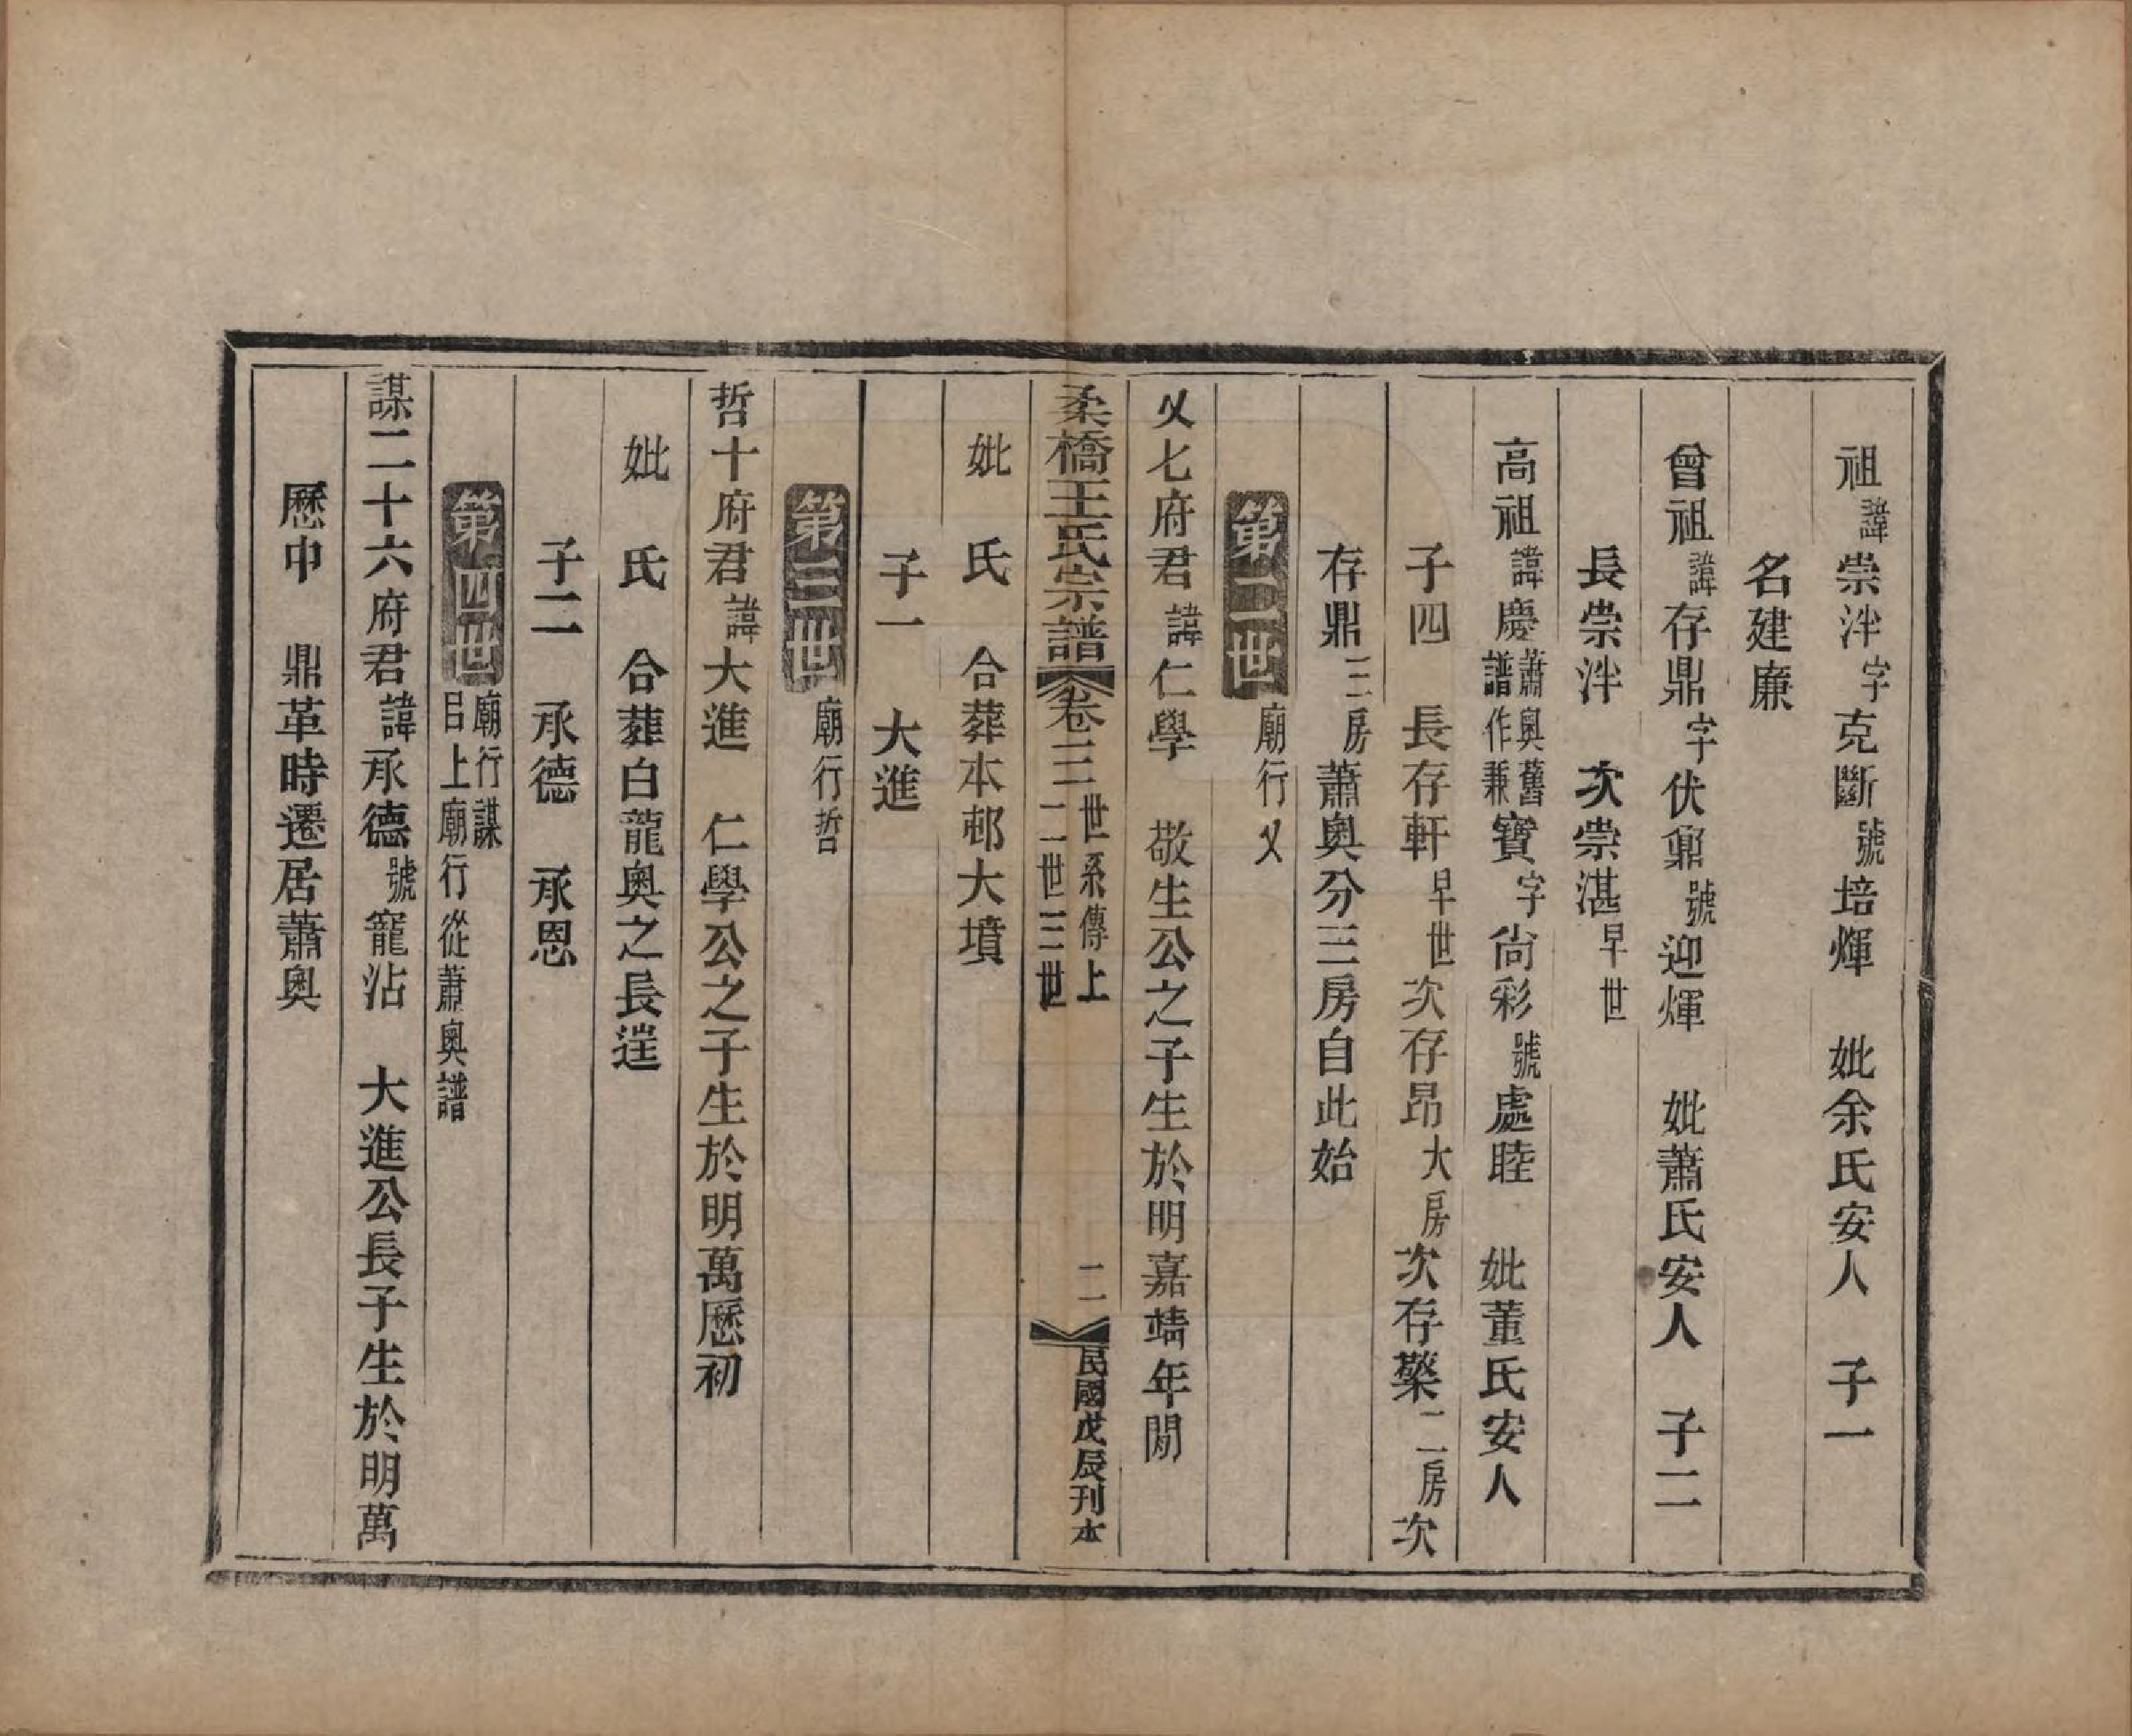 祖諱崇泮字克斷號培煇　妣余氏安人　子一
名建廉
曾祖諱存鼎字伏鼐號迎煇　妣蕭氏安人　子二
長崇泮　次崇湛早世
高祖諱慶蕭奧舊譜作兼寶字尙彩號處睦　妣董氏安人
子四　長存軒早世次存昂大房次存檠二房次
存鼎三房蕭奧分三房自此始
第二世廟行乂
乂七府君諱仁學　敬生公之子生於明嘉靖年閒
柔橋王氏宗譜卷三世系傳上二世三世　二　民國戊辰刊本
妣　氏　合葬本邨大墳
子一　大進
第三世廟行哲
哲十府君諱大進　仁學公之子生於明萬歷初
妣　氏　合葬白龍奧之長
子二　承德　承恩
第四世廟行謀㠯上廟行從蕭奧譜
謀二十六府君諱承德號寵沾　大進公長子生於明萬
歷中　鼎革時遷居蕭奧